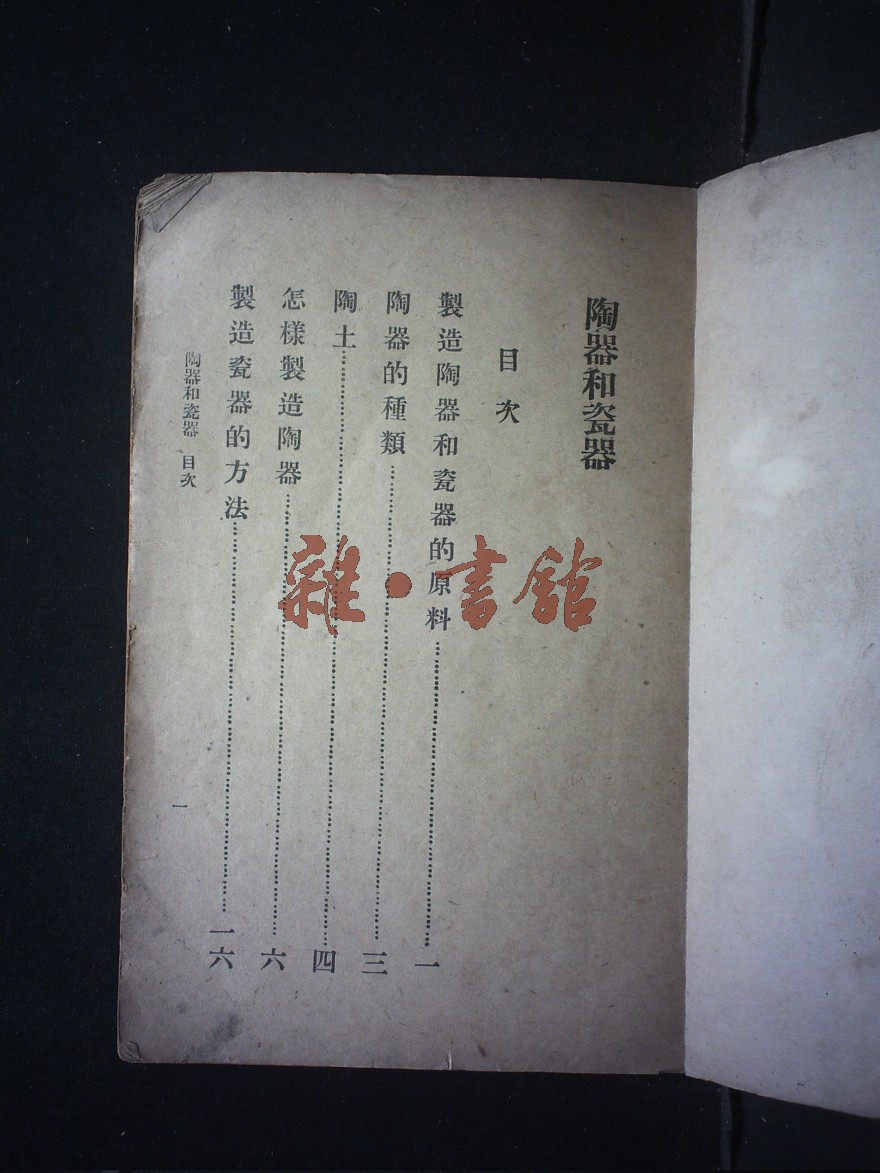 陶器和瓷器
目次
製造陶器和瓷器的原料……一
陶器的種類……三
陶土……四
怎樣製造陶器……六
製造瓷器的方法……一六
陶器和瓷器 目次
一
雜·書館